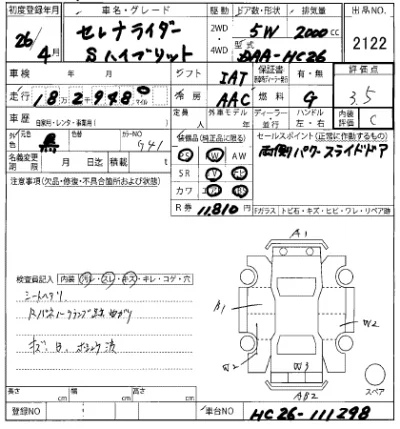 初度登録年月 車名・グレード 駆動 ドア数・形状 排気量 出品NO.
26年 4月 セレナライダー Sハイブリット 2WD 4WD 5W 2000cc 2122
型式 DAA-HC26
車検 年 月 シフト IAT 保証書 有・無 評価点 3.5
走行 18万2948 マイル 冷房 AAC 燃料 G
車歴 自家用・レンタ・事業用( ) 定員 人 外車モデル 年 ディーラー 並行 ハンドル 左・右 内装評価 C
外色 元色 黒 色替 カラーNO G41 装備品(純正品に限る) セールスポイント(正常に作動するもの)
PS PW AW 両側パワースライドドア
名義変更期限 月 日迄 積載 t SR
カワ
注意事項(欠品・修復・不具合箇所および状態) R券 11,810円 Fガラス トビ石・キズ・ヒビ・ワレ・リペア跡
A1
検査員記入 内装 汚レ・スレ・キズ・キレ・コゲ・穴
シートヘタリ
A1 W2
キズ、凹、
W2 W3
AB2
スペア
長さ cm 幅 cm 高さ cm
登録NO 車台NO HC26-111298